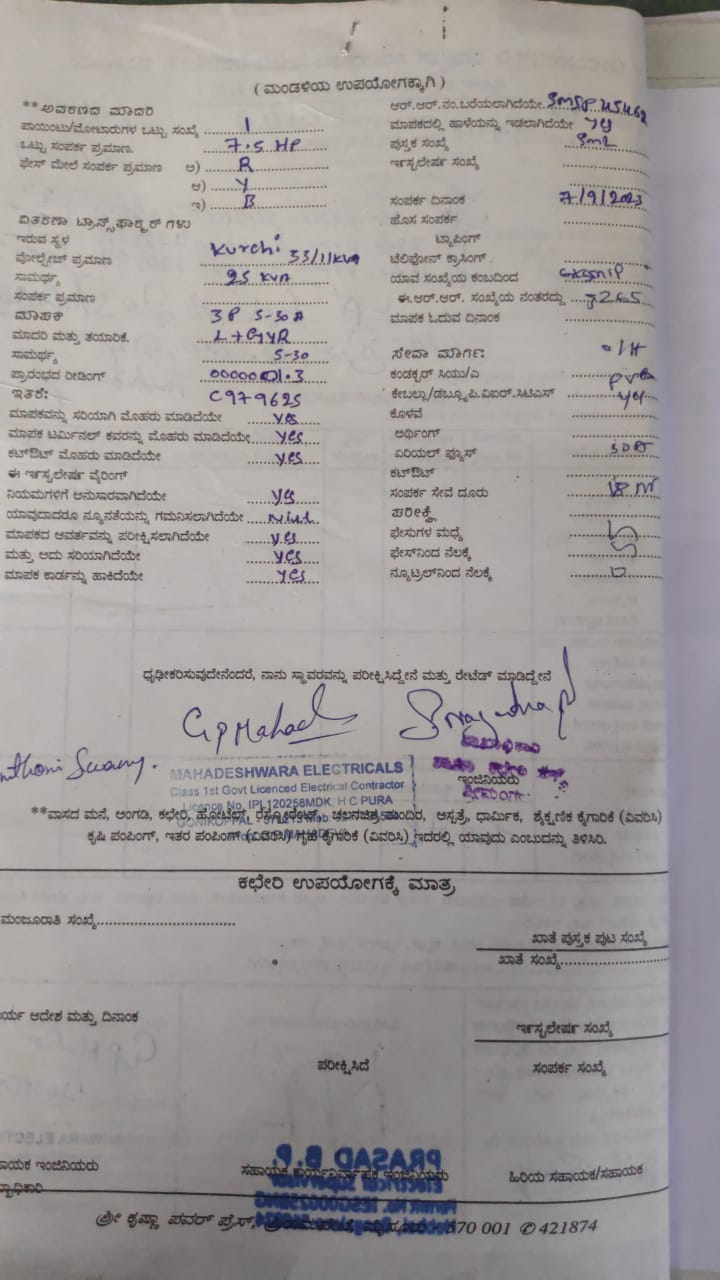 ( ಮಂಡಳಿಯ ಉಪಯೋಗಕ್ಕಾಗಿ )
**ಅವಕರಣದ ಮಾದರಿ
ಪಾಯಿಂಟು/ಮೋಟಾರುಗಳ ಒಟ್ಟು ಸಂಖ್ಯೆ 1
ಒಟ್ಟು ಸಂಪರ್ಕ ಪ್ರಮಾಣ. 7.5 HP
ಫೇಸ್ ಮೇಲೆ ಸಂಪರ್ಕ ಪ್ರಮಾಣ ಅ) R
ಆ) Y
ಇ) B
ವಿತರಣಾ ಟ್ರಾನ್ಸ್‌ಫಾರ್ಮರ್ ಗಳು
ಇರುವ ಸ್ಥಳ Kurchi
ವೋಲ್ಟೇಜ್ ಪ್ರಮಾಣ 33/11KVA
ಸಾಮರ್ಥ್ಯ 25 KVA
ಸಂಪರ್ಕ ಪ್ರಮಾಣ
ಮಾಪಕ 3P 5-30A
ಮಾದರಿ ಮತ್ತು ತಯಾರಿಕೆ. L+GYR
ಸಾಮರ್ಥ್ಯ 5-30
ಪ್ರಾರಂಭದ ರೀಡಿಂಗ್ 000001.3
ಇತರೆ: C979625
ಮಾಪಕವನ್ನು ಸರಿಯಾಗಿ ಮೊಹರು ಮಾಡಿದೆಯೇ yes
ಮಾಪಕ ಟರ್ಮಿನಲ್ ಕವರನ್ನು ಮೊಹರು ಮಾಡಿದೆಯೇ yes
ಕಟ್‌ಔಟ್ ಮೊಹರು ಮಾಡಿದೆಯೇ yes
ಈ ಇನ್ಸ್ಟಲೇಷನ್ ವೈರಿಂಗ್
ನಿಯಮಗಳಿಗೆ ಅನುಸಾರವಾಗಿದೆಯೇ yes
ಯಾವುದಾದರೂ ನ್ಯೂನತೆಯನ್ನು ಗಮನಿಸಲಾಗಿದೆಯೇ
ಮಾಪಕದ ಆವರ್ತವನ್ನು ಪರೀಕ್ಷಿಸಲಾಗಿದೆಯೇ yes
ಮತ್ತು ಅದು ಸರಿಯಾಗಿದೆಯೇ yes
ಮಾಪಕ ಕಾರ್ಡನ್ನು ಹಾಕಿದೆಯೇ yes
ಆರ್.ಆರ್.ನಂ.ಬರೆಯಲಾಗಿದೆಯೇ.
ಮಾಪಕದಲ್ಲಿ ಹಾಳೆಯನ್ನು ಇಡಲಾಗಿದೆಯೇ yes
ಪುಸ್ತಕ ಸಂಖ್ಯೆ
ಇನ್ಸ್ಟಲೇಷನ್ ಸಂಖ್ಯೆ
ಸಂಪರ್ಕ ದಿನಾಂಕ 7/9/2023
ಹೊಸ ಸಂಪರ್ಕ
ಟ್ಯಾಪಿಂಗ್
ಟೆಲಿಫೋನ್ ಕ್ರಾಸಿಂಗ್
ಯಾವ ಸಂಖ್ಯೆಯ ಕಂಬದಿಂದ
ಈ.ಆರ್.ಆರ್. ಸಂಖ್ಯೆಯ ನಂತರದ್ದು
ಮಾಪಕ ಓದುವ ದಿನಾಂಕ
ಸೇವಾ ಮಾರ್ಗ:
ಕಂಡಕ್ಟರ್ ಸಿಯು/ಎ
ಕೇಬಲ್ಲು/ಡಬ್ಲ್ಯೂ.ಪಿ.ಐಆರ್.ಸಿಟಿಎಸ್
ಕೊಳವೆ
ಅರ್ಥಿಂಗ್
ಏರಿಯಲ್ ಫ್ಯೂಸ್
ಕಟ್‌ಔಟ್
ಸಂಪರ್ಕ ಸೇವೆ ದೂರು
ಪರೀಕ್ಷೆ
ಫೇಸುಗಳ ಮಧ್ಯೆ
ಫೇಸ್‌ನಿಂದ ನೆಲಕ್ಕೆ
ನ್ಯೂಟ್ರಲ್‌ನಿಂದ ನೆಲಕ್ಕೆ
ಧೃಢೀಕರಿಸುವುದೇನೆಂದರೆ, ನಾನು ಸ್ಥಾವರವನ್ನು ಪರೀಕ್ಷಿಸಿದ್ದೇನೆ ಮತ್ತು ರೇಟೆಡ್ ಮಾಡಿದ್ದೇನೆ
MAHADESHWARA ELECTRICALS
Class 1st Govt Licenced Electrical Contractor
Licence No. IPL120258MDK, H C PURA
ಇಂಜಿನಿಯರು
**ವಾಸದ ಮನೆ, ಅಂಗಡಿ, ಕಛೇರಿ, ಹೋಟೆಲ್, ರೆಸ್ಟೋರೆಂಟ್, ಚಲನಚಿತ್ರ ಮಂದಿರ, ಆಸ್ಪತ್ರೆ, ಧಾರ್ಮಿಕ, ಶೈಕ್ಷಣಿಕ ಕೈಗಾರಿಕೆ (ವಿವರಿಸಿ)
ಕೃಷಿ ಪಂಪಿಂಗ್, ಇತರ ಪಂಪಿಂಗ್ (ವಿವರಿಸಿ) ಗೃಹ ಕೈಗಾರಿಕೆ (ವಿವರಿಸಿ) ಇದರಲ್ಲಿ ಯಾವುದು ಎಂಬುದನ್ನು ತಿಳಿಸಿರಿ.
ಕಛೇರಿ ಉಪಯೋಗಕ್ಕೆ ಮಾತ್ರ
ಮಂಜೂರಾತಿ ಸಂಖ್ಯೆ
ಖಾತೆ ಪುಸ್ತಕ ಪುಟ ಸಂಖ್ಯೆ
ಖಾತೆ ಸಂಖ್ಯೆ
ರ್ಯ ಆದೇಶ ಮತ್ತು ದಿನಾಂಕ
ಇನ್ಸ್ಟಲೇಷನ್ ಸಂಖ್ಯೆ
ಪರೀಕ್ಷಿಸಿದೆ
ಸಂಪರ್ಕ ಸಂಖ್ಯೆ
PRASAD B.P.
ಾಯಕ ಇಂಜಿನಿಯರು
ಸಹಾಯಕ ಕಾರ್ಯನಿರ್ವಾಹಕ ಇಂಜಿನಿಯರು
ಹಿರಿಯ ಸಹಾಯಕ/ಸಹಾಯಕ
ಶ್ರೀ ಕೃಷ್ಣಾ ಪವರ್ ಪ್ರೆಸ್, 570 001 ✆ 421874